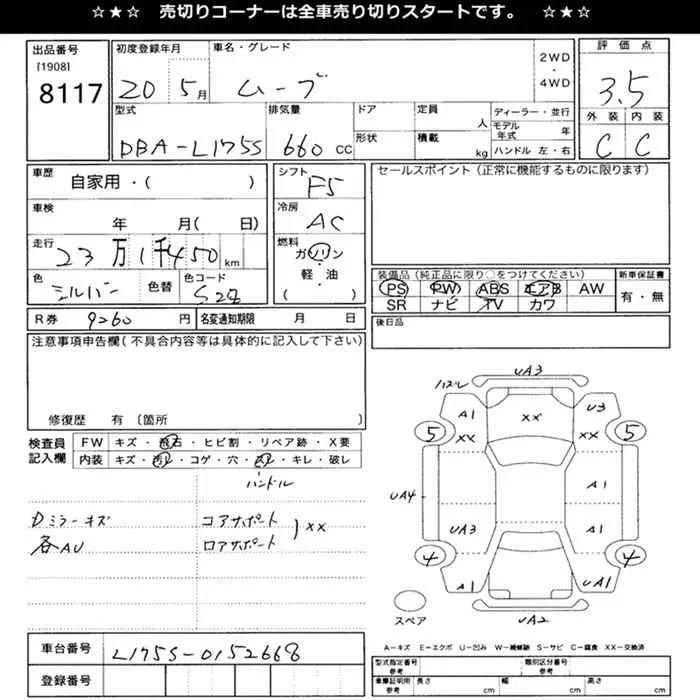 ☆★☆ 売切りコーナーは全車売り切りスタートです。 ☆★☆
出品番号
[1908]
8117
初度登録年月
20 5月
車名・グレード
ムーブ
2WD
・
4WD
評価点
3.5
外装 内装
C C
型式
DBA-L175S
排気量
660 CC
ドア
形状
定員
人
積載
kg
ディーラー・並行
モデル年式 年
ハンドル 左・右
車歴
自家用・( )
車検
年 月( 日)
走行
23万1千450km
色
シルバー
色替
色コード
S28
シフト
F5
冷房
AC
燃料
ガソリン
・
軽・油
( )
セールスポイント(正常に機能するものに限ります)
装備品(純正品に限り○をつけてください)
PS PW ABS エアB AW
SR ナビ TV カワ
新車保証書
有・無
R券 9260 円
名変通知期限 月 日
後日品
注意事項申告欄(不具合内容等は具体的に記入して下さい)
修復歴 有〔箇所 〕
検査員記入欄
FW キズ・飛石・ヒビ割・リペア跡・X要
内装 キズ・汚レ・コゲ・穴・スレ・キレ・破レ
ハンドル
Dミラーキズ
各AU
コアサポート
ロアサポート
XX
UA3
ハズレ
A1
XX
XX
U3
XX
5
5
UA4
A1
UA3
A1
4
4
A1
UA1
UA2
スペア
A-キズ E-エクボ U-凹み W-補修跡 S-サビ C-腐食 XX-交換済
車台番号 L175S-0152668
登録番号
型式指定番号
参考
類別区分番号
参考
車庫証明用
参考
長さ cm
幅 cm
高さ cm